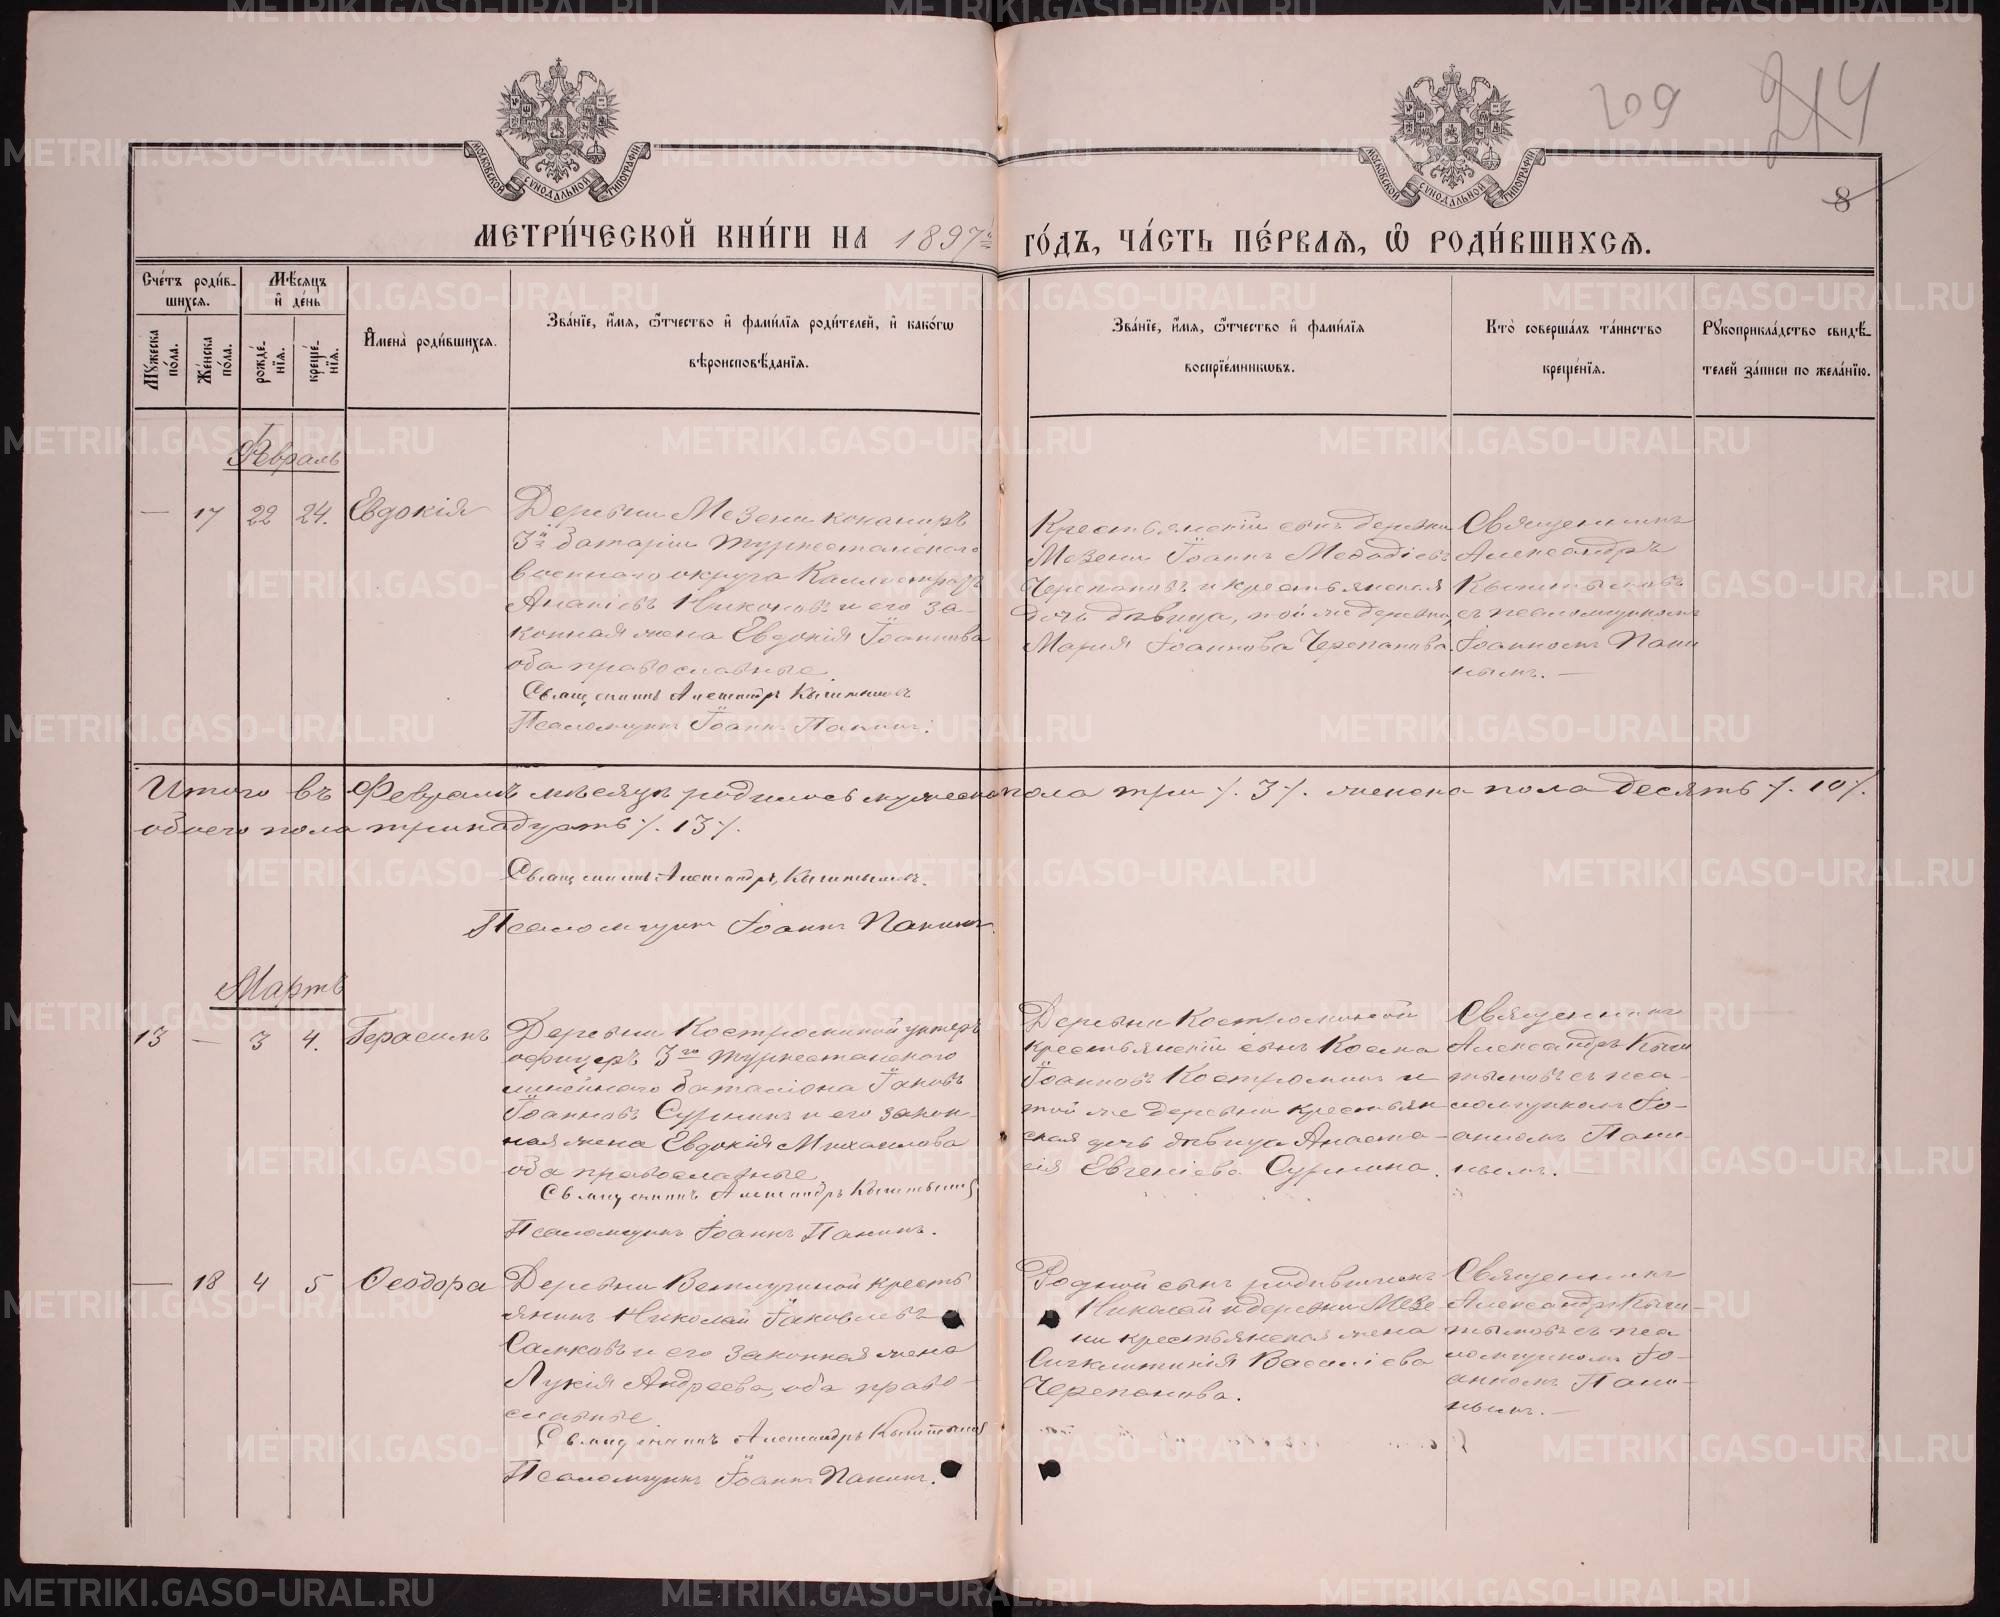 209
214
8
МОСКОВСКОЙ СУНОДАЛЬНОЙ ТИПОГРАФІИ
МОСКОВСКОЙ СУНОДАЛЬНОЙ ТИПОГРАФІИ
МЕТРИ́ЧЕСКОЙ КНИ́ГИ НА 1897й ГО́ДЪ, ЧА́СТЬ ПЕ́РВАѦ, Ѽ РОДИ́ВШИХСѦ.
Сче́тъ роди́в-
шихсѧ.
Мꙋ́жеска по́ла.
Же́нска по́ла.
Мѣ́сѧцъ и҆ де́нь
рожде́-
нїѧ.
креще́-
нїѧ.
И҆мена̀ роди́вшихсѧ.
Зва́нїе, и҆́мѧ, ѻ҆́тчество и҆ фами́лїѧ роди́телей, и҆ како́гѡ
вѣроисповѣ́данїѧ.
Зва́нїе, и҆́мѧ, ѻ҆́тчество и҆ фами́лїѧ
воспрїе́мникѡвъ.
Кто̀ соверша́лъ та́инство
креще́нїѧ.
Рꙋкоприкла́дство свидѣ́-
телей за́писи по жела́нїю.
Февраль
— 17 22 24. Евдокія
Деревни Мезени канониръ
3й батареи Туркестанскаго
военнаго округа Каллистратъ
Ананіевъ Никоновъ и его за-
конная жена Евдокія Іоаннова
оба православные.
Священникъ Александръ Кыштымовъ
Псаломщикъ Іоаннъ Панинъ.
Крестьянскій сынъ деревни
Мезени Іоаннъ Меѳодіевъ
Черепановъ и крестьянская
дочь дѣвица, той же деревни,
Марія Іоаннова Черепанова.
Священникъ
Александръ
Кыштымовъ
съ псаломщикомъ
Іоанномъ Пани
нымъ. —
Итого въ Февралѣ мѣсяцѣ родилось мужеска пола три /. 3 /. женска пола десять /. 10 /.
обоего пола тринадцать /. 13 /.
Священникъ Александръ Кыштымовъ.
Псаломщикъ Іоаннъ Панинъ.
Мартъ
13 — 3 4. Герасимъ
Деревни Костроминой унтеръ
офицеръ 3го Туркестанскаго
линейнаго баталіона Іаковъ
Іоанновъ Суринъ и его закон-
ная жена Евдокія Михаилова
оба православные.
Священникъ Александръ Кыштымовъ
Псаломщикъ Іоаннъ Панинъ.
Деревни Костроминой
крестьянскій сынъ Косма
Іоанновъ Костроминъ и
той же деревни крестьян
ская дочь дѣвица Анаста-
сія Евгеніева Сурина.
Священникъ
Александръ Кыш
тымовъ съ пса-
ломщикомъ Іо-
анномъ Пани-
нымъ. —
— 18 4 5 Ѳеодора
Деревни Ветлугиной кресть
янинъ Николай Іаковлевъ
Самковъ и его законная жена
Лукія Андреева, оба право-
славные
Священникъ Александръ Кыштымовъ
Псаломщикъ Іоаннъ Панинъ.
Родной сынъ родившихъ
Николай и деревни Мезе
ни крестьянская жена
Сигклитикія Василіева
Черепанова.
Священникъ
Александръ Кыш-
тымовъ съ пса
ломщикомъ Іо-
анномъ Пани-
нымъ. —
METRIKI.GASO-URAL.RU